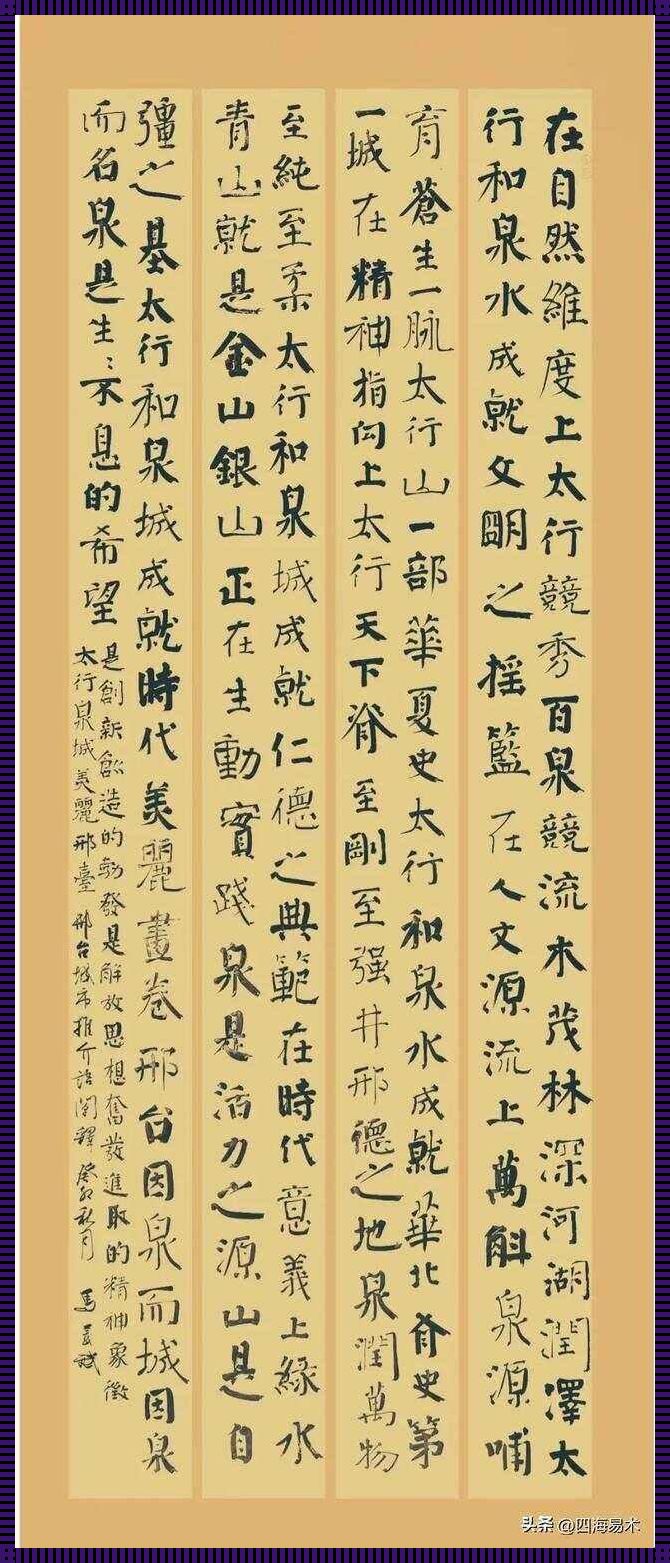 在自然維度上太行競秀百泉競流木茂林深河湖潤澤太
行和泉水成就文明之摇籃在人文源流上萬斛泉源哺
育蒼生一脈太行山一部華夏史太行和泉水成就華北有史第
一城在精神指向上太行天下脊至剛至强井邢德之地泉潤萬物
至純至柔太行和泉城成就仁德之典範在時代意義上緑水
青山就是金山銀山正在生動實踐泉是活力之源山是自
彊之基太行和泉城成就時代美麗畫卷邢台因泉而城因泉
而名泉是生〻不息的希望
是創新創造的勃發是解放思想奮發進取的精神象徵
太行泉城美麗邢臺 邢台城市推介語闡釋 癸卯秋月 馬斌
头条 @四海易木